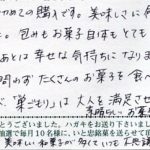 めての購入です。美味しさに
。包みもお菓子自体もとても
あとは幸せな気持ちになりま
問わずたくさんのお菓子を食べ
で「巣ごもり」は大人も満足させ
素晴らしいお菓
とうございました。ハガキをお送り下さいまし
抽選で毎月10名様に、いと忠銘菓を送らせて頂
美味しい和菓子が多くていつも